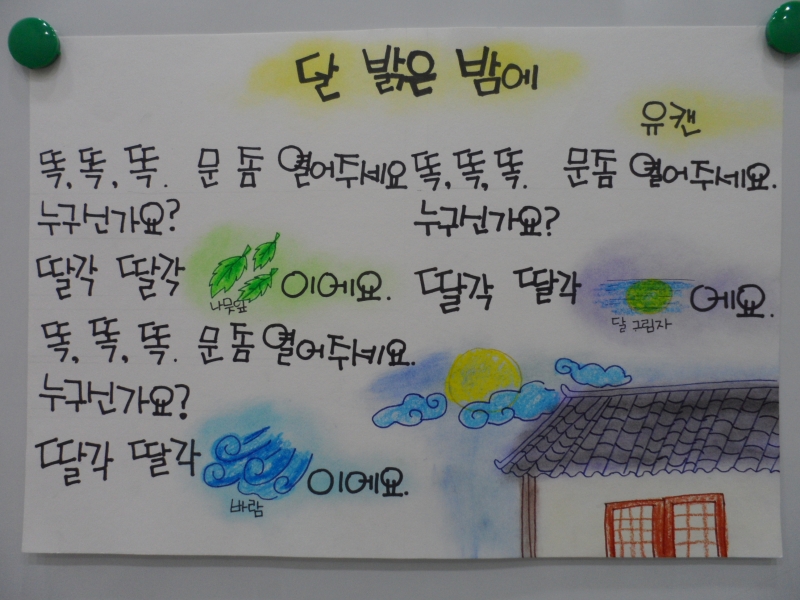 달 밝은 밤에
유캔
똑, 똑, 똑. 문 돔 열어주세요
누구신가요?
딸각 딸각 이에요.
나뭇잎
똑, 똑, 똑. 문 돔 열어주세요.
누구신가요?
딸각 딸각 이에요.
바람
똑, 똑, 똑. 문 돔 열어주세요.
누구신가요?
딸각 딸각 에요.
달 그림자